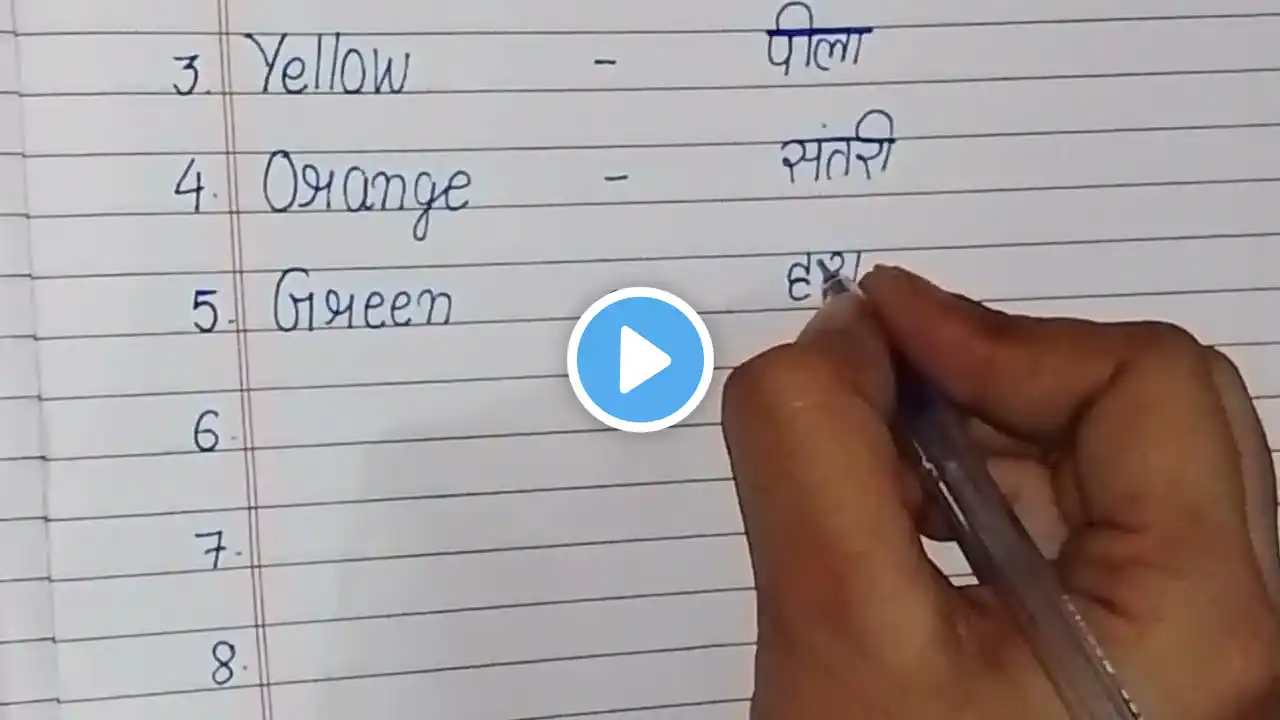 3. Yellow - पीला
4. Orange - संतरी
5. Green - हरा
6.
7.
8.